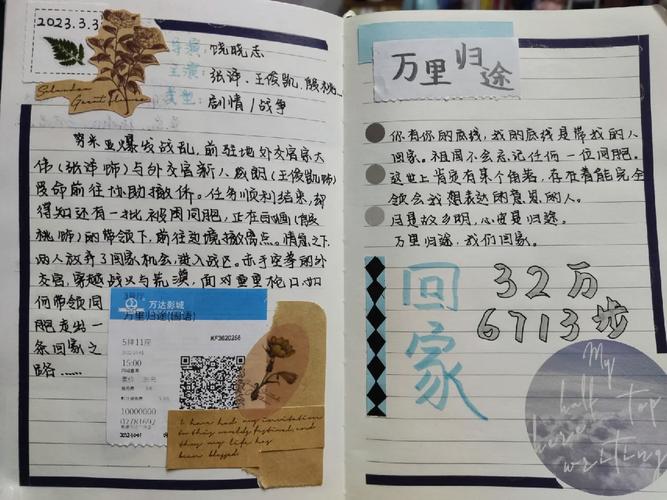 2023.3.3
导演：饶晓志
主演：张译、王俊凯、殷桃
类型：剧情/战争
努米亚爆发战乱，前驻地外交官宗大
伟（张译饰）与外交官新人成朗（王俊凯饰）
受命前往协助撤侨。任务顺利结束，却
得知还有一批被困同胞，正在白婳（殷
桃饰）的带领下，前往边境撤离点。情急之下，
两人放弃了回家机会，进入战区。赤手空拳的外
交官，穿越战火与荒漠，面对重重枪口，如
何带领同
胞走出一
条回家之
路……
万达影城
万里归途(国语)
5排11座
15:00
10000000
I have had my invitation
to this worlds festival and
thus my life has
been blessed
万里归途
你有你的底线，我的底线是带我的人
回家。祖国不会忘记任何一位同胞。
这世上肯定有某个角落，存在着能完全
领会我想表达的意思的人。
月是故乡明，心安是归途。
万里归途，我们回家。
回家
32万
6713步
My
half
top
writing